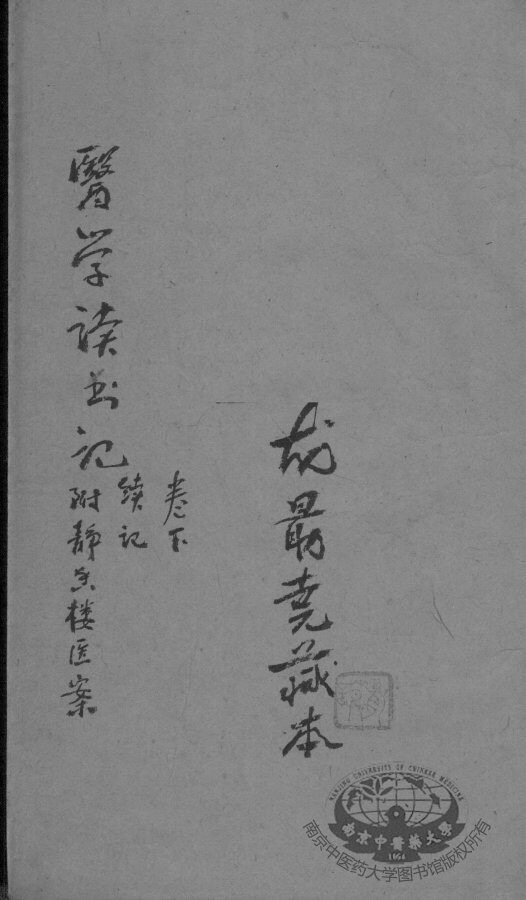 尧藏本
卷下
续记
醫学读书记
附静香楼医案
NANJING UNIVERSITY OF CHINESE MEDICINE
南京中醫藥大學
1954
南京中医药大学图书馆版权所有